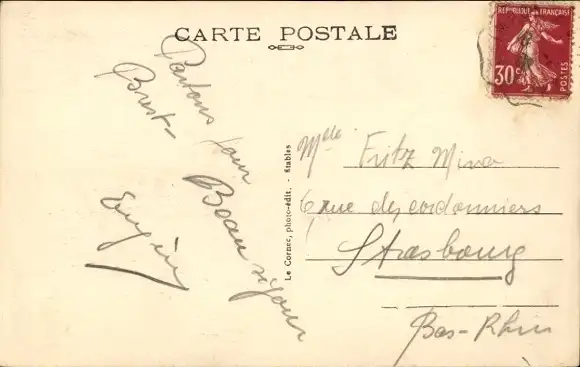 CARTE POSTALE
REPUBLIQUE FRANÇAISE
30c
POSTES
Partons pour
Brest
Beau séjour
Eugène
Le Cornec, photo-édit. - Etables
Mlle Fritz Mina
6 rue des cordonniers
Strasbourg
Bas-Rhin